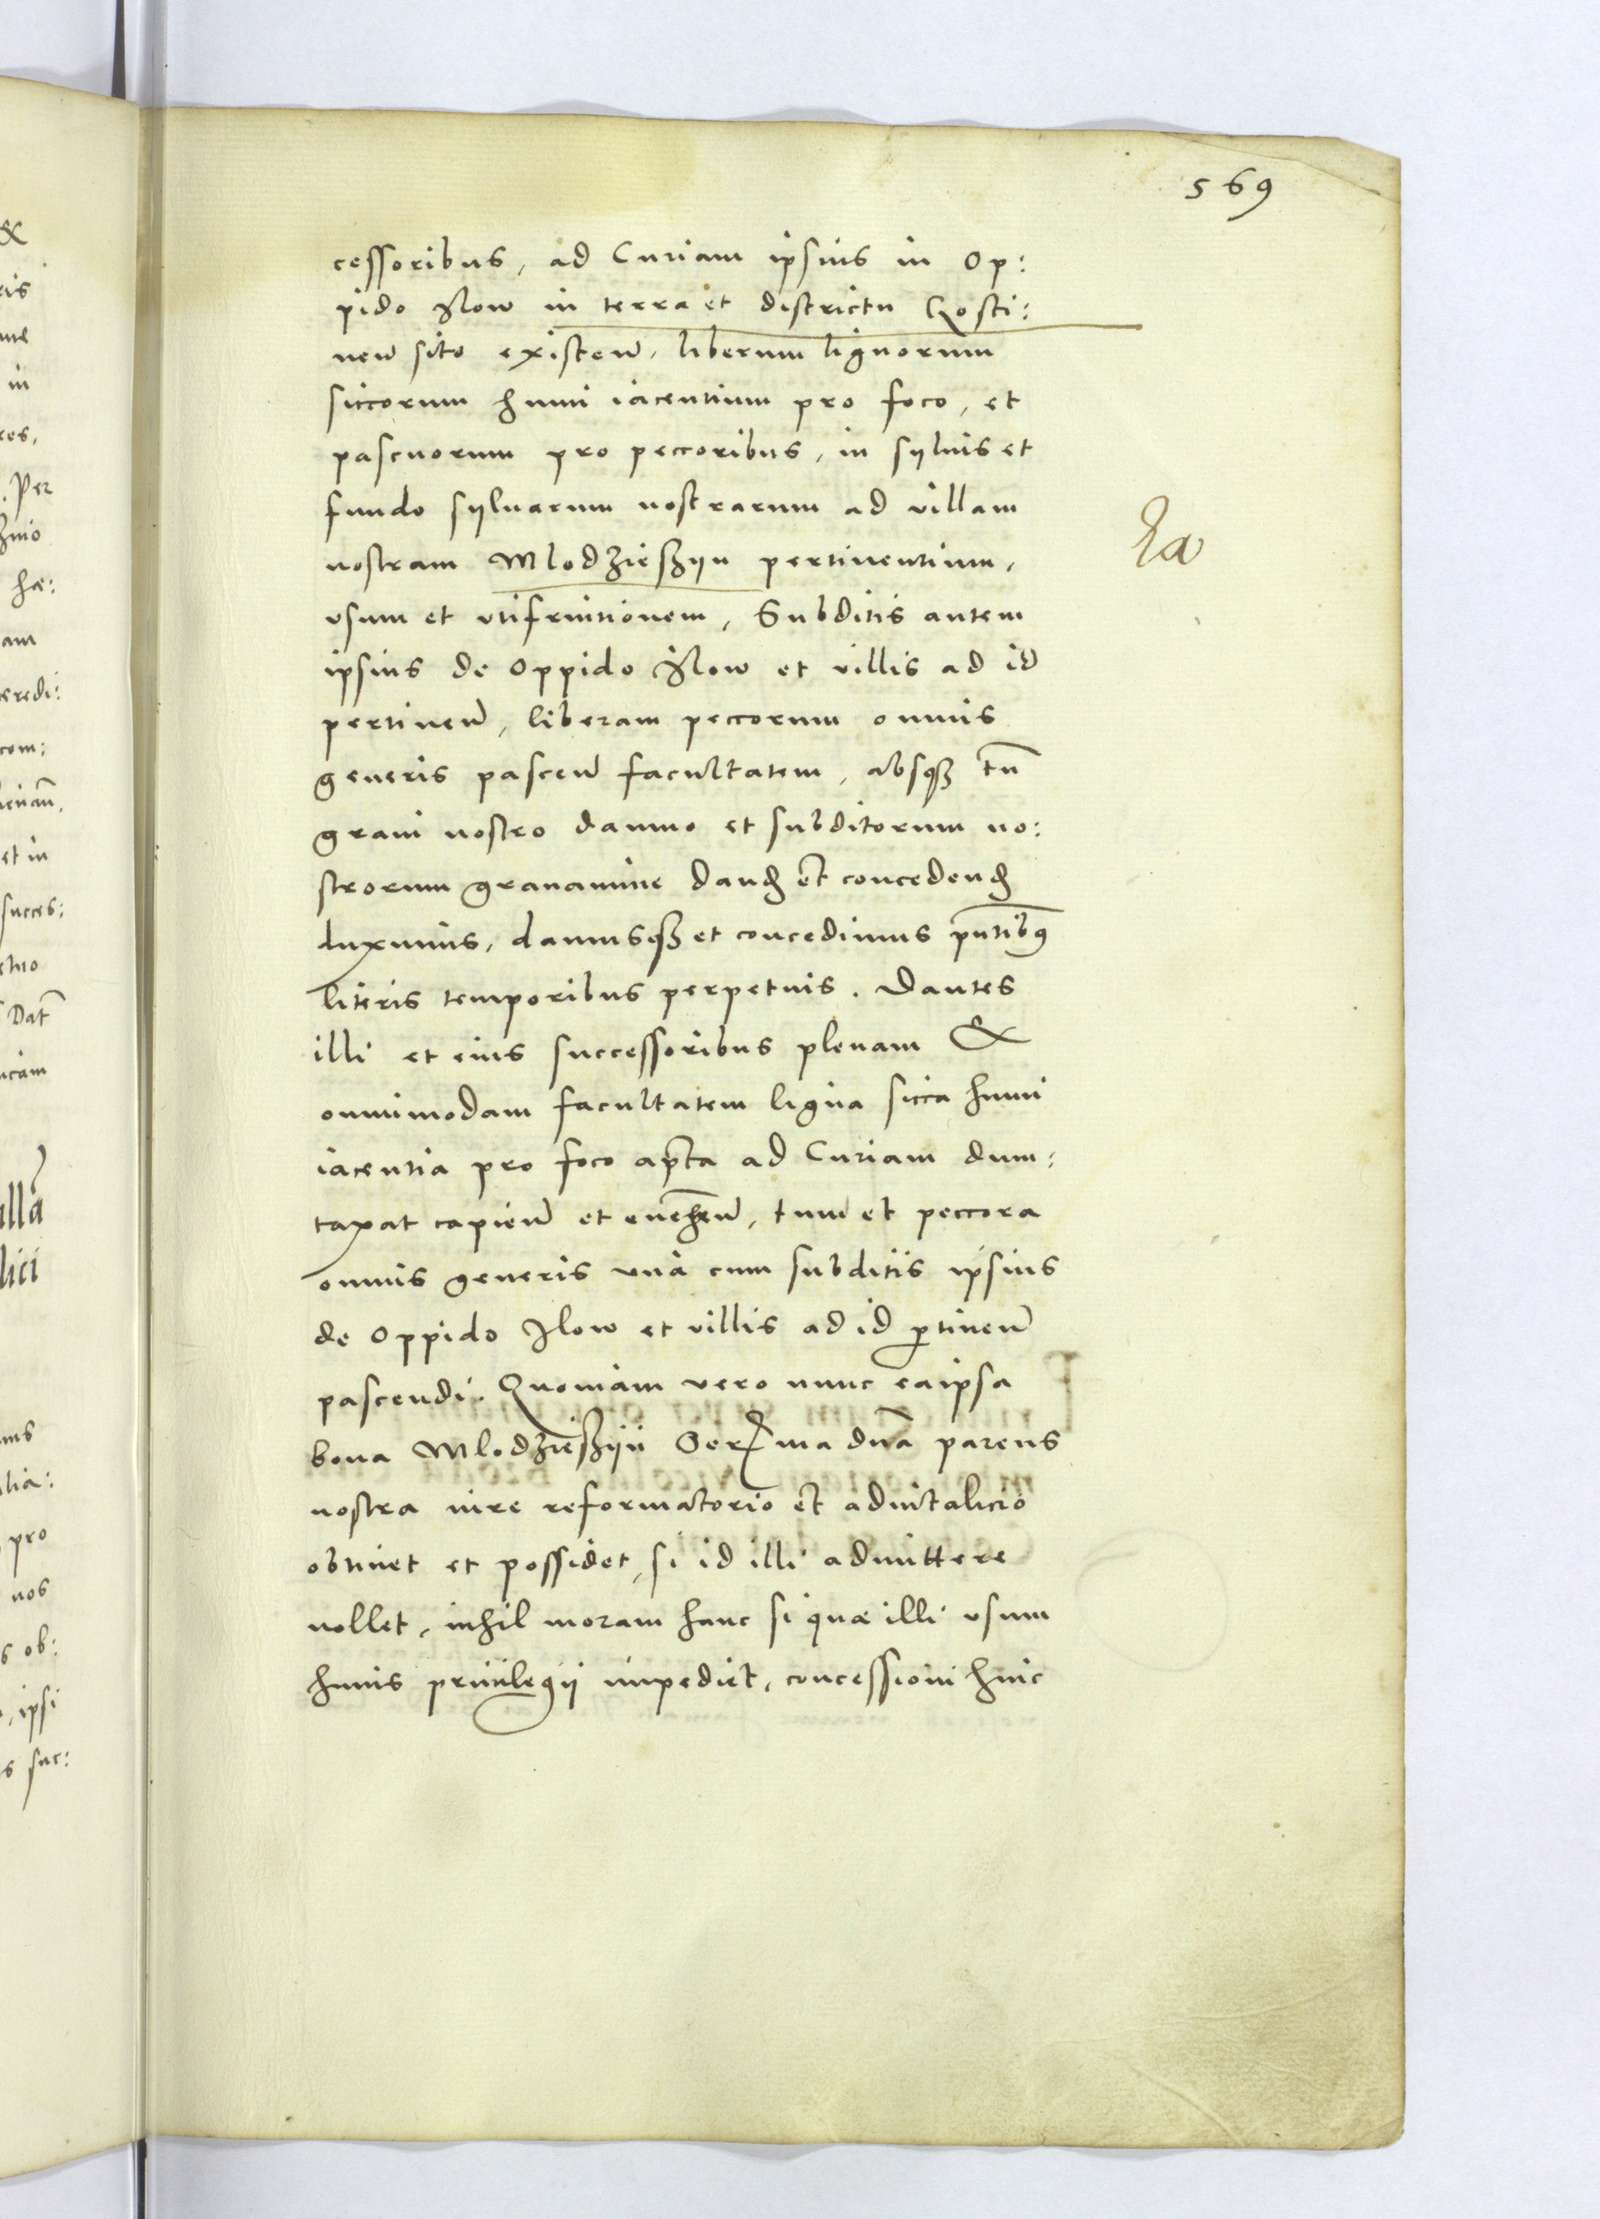 569
cessoribus, ad Curiam ipsius in Op:
pido Ilow in terra et districtu Gosti:
nen̄ sito existen̄, liberum lignorum
siccorum humi iacentium pro foco, et
pascuorum pro peccoribus, in syluis et
fundo syluarum nostrarum ad villam
nostram Mlodzieszyn pertinentium,
vsum et vtifruitionem, Subditis autem
ipsius de Oppido Ilow et villis ad id
pertinen̄, liberam peccorum omnis
generis pascen̄ facultatem, absqꝫ tn̄
graui nostro damno et subditorum no:
strorum grauamine dand̄ et concedend̄
duximus, damusqꝫ et concedimus pn̄tibꝯ
literis temporibus perpetuis. Dantes
illi et eius successoribus plenam &
omnimodam facultatem ligna sicca humi
iacentia pro foco apta ad Curiam dum:
taxat capien̄ et euehen̄, tum et peccora
omnis generis vnà cum subditis ipsius
de Oppido Ilow et villis ad id ꝑtinen̄
pascendi. Quoniam vero nunc eaipsa
bona Mlodzieszyn Serma dn̄a parens
nostra iure reformatorio et aduitalicio
obtinet et possidet, si id illi admittere
nollet, nihil moram hanc si quæ illi vsum
huius priuilegij impediet, concessioni huic